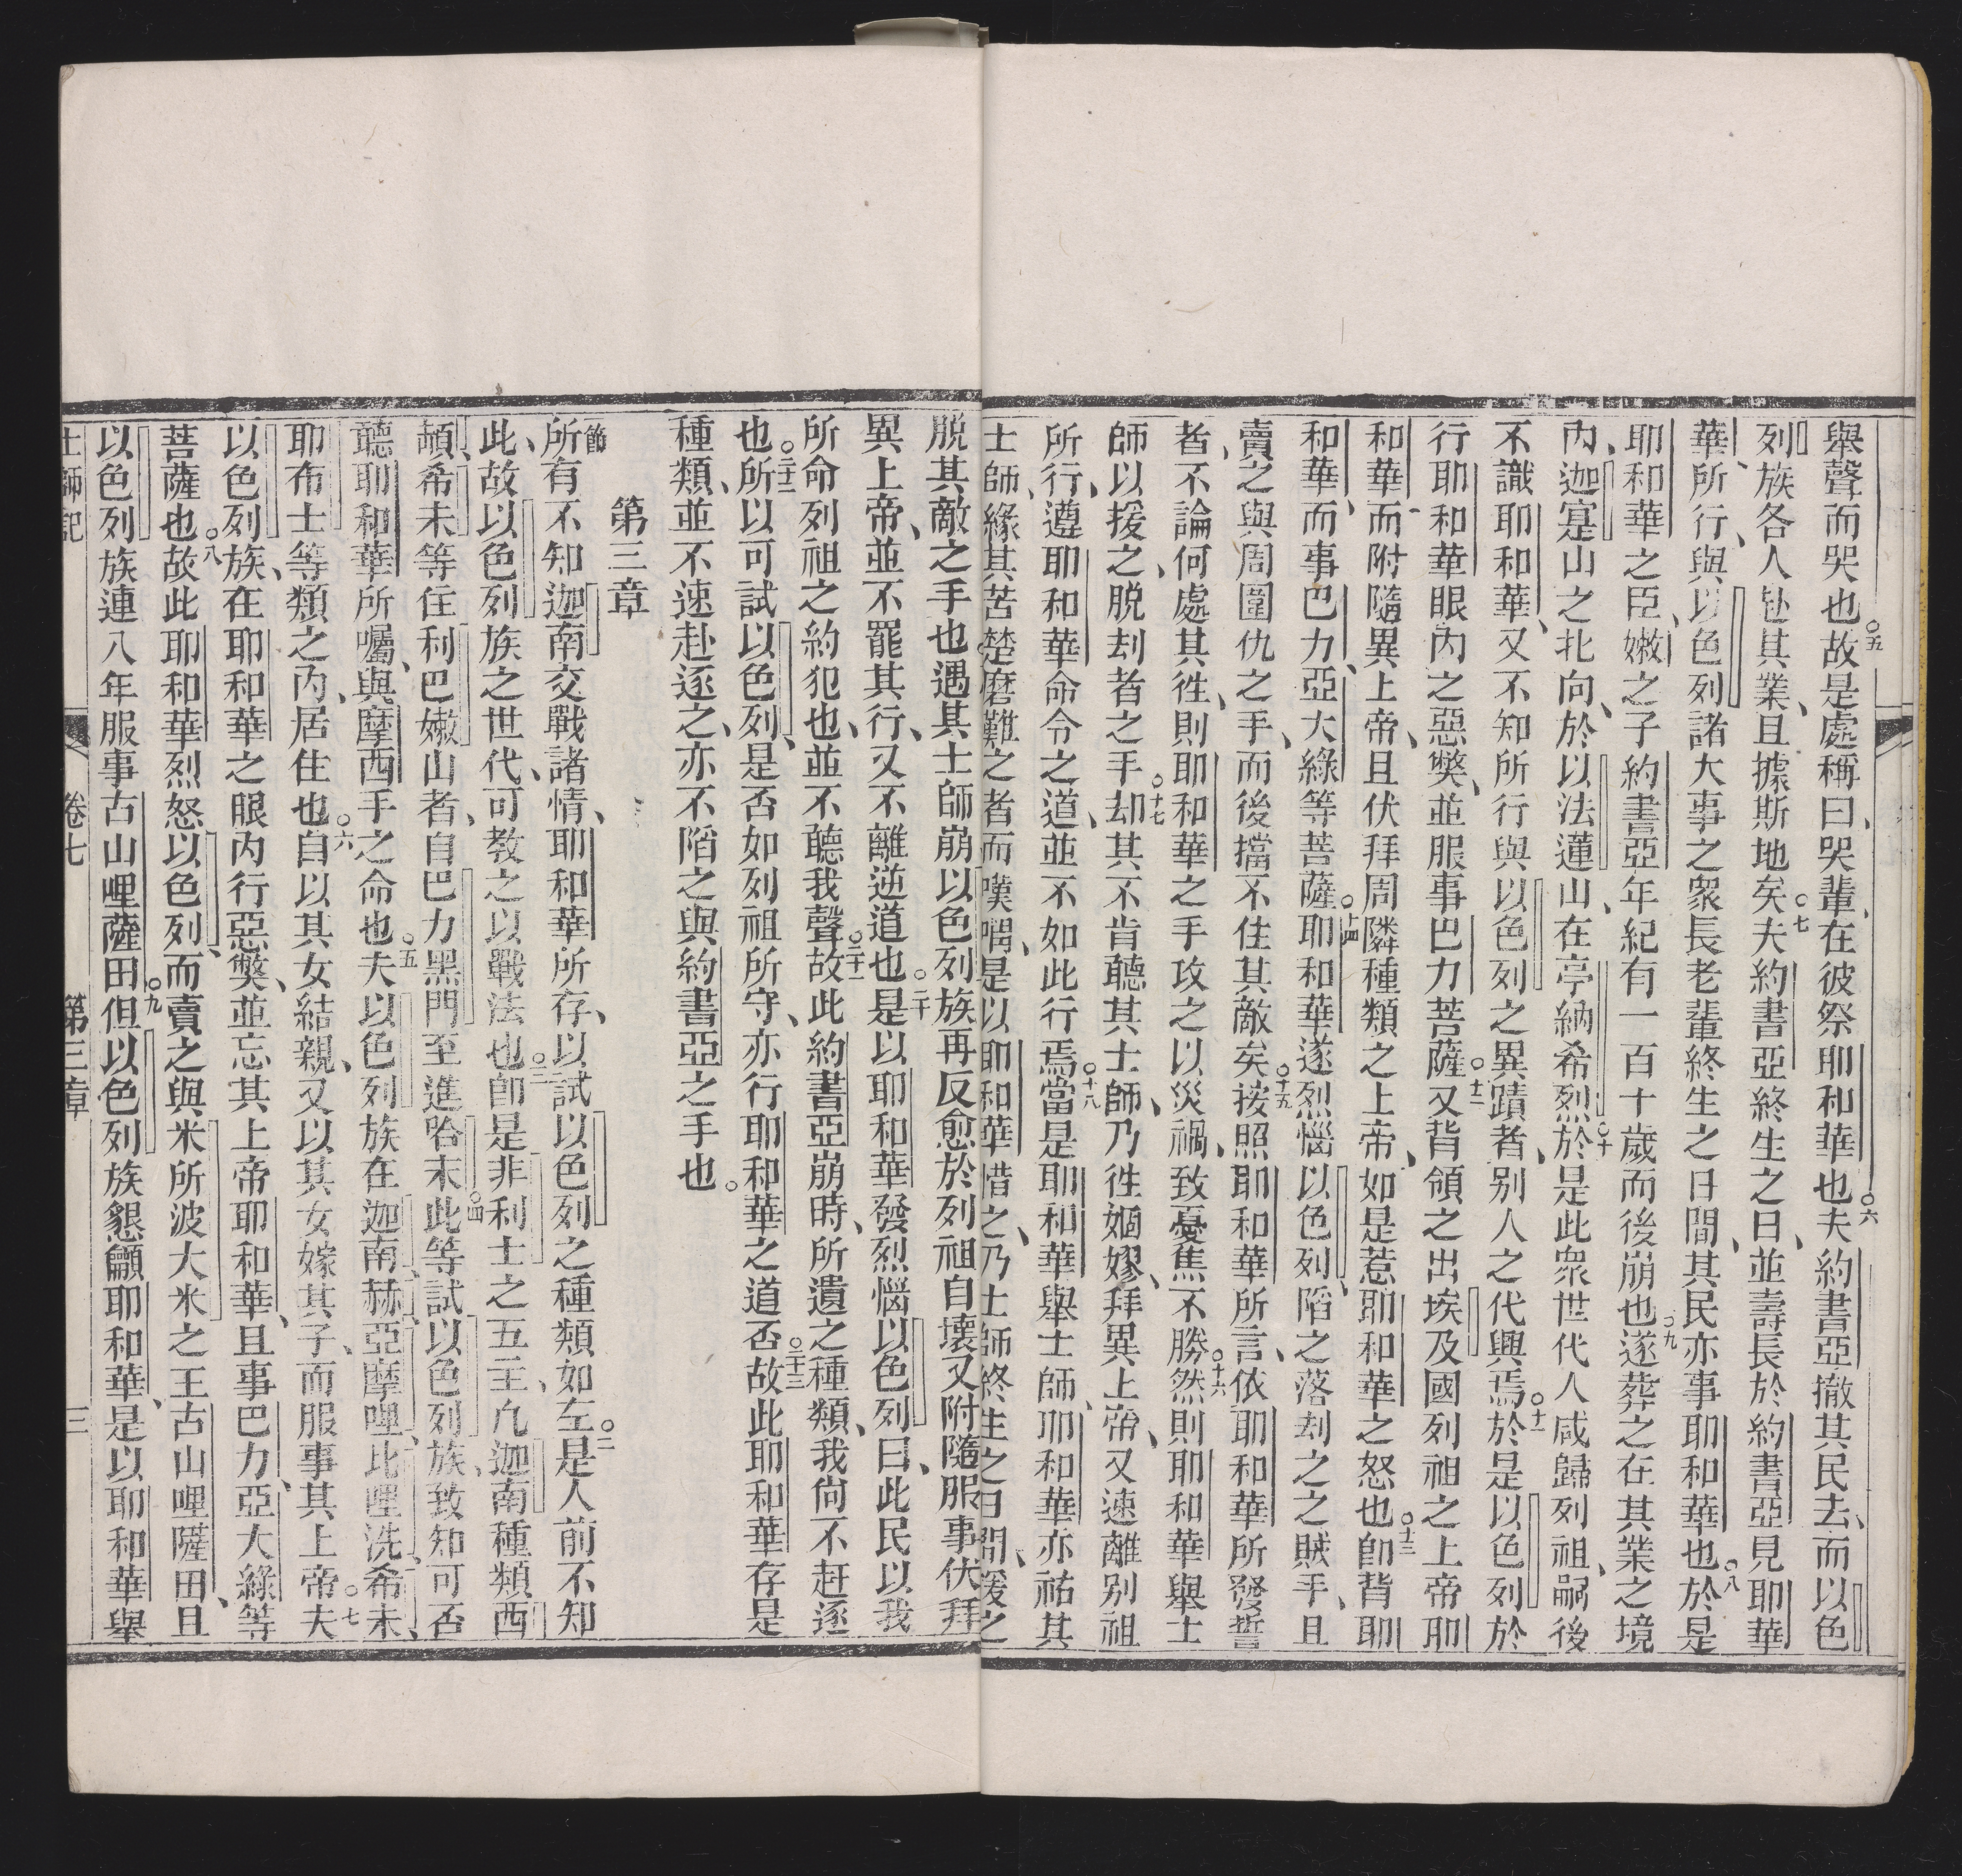 舉聲而哭也○五故是處稱曰、哭輩、在彼祭耶和華也○六夫約書亞撤其民去、而以色
列族各人赴其業、且據斯地矣○七夫約書亞終生之日、並壽長於約書亞見耶華
華、所行、與以色列諸大事之衆長老輩終生之日間、其民亦事耶和華也○八於是
耶和華之臣、嫩之子約書亞年紀有一百十歲而後崩也○九遂葬之在其業之境
內、迦寔山之北向、於以法蓮山、在亭納希烈○十於是此衆世代人咸歸列祖、嗣後
不識耶和華、又不知所行與以色列之異蹟者、别人之代興焉○十一於是以色列於
行耶和華眼內之惡獘、並服事巴力菩薩○十二又背領之出埃及國列祖之上帝耶
和華而附隨異上帝、且伏拜周隣種類之上帝、如是惹耶和華之怒也○十三卽背耶
和華、而事巴力、亞大綠等菩薩○十四耶和華遂烈惱以色列、陷之落刦之之賊手、且
賣之與周圍仇之手、而後擋不住其敵矣○十五按照耶和華所言、依耶和華所發誓
者、不論何處其徃、則耶和華之手攻之以災禍、致憂焦不勝○十六然則耶和華舉士
師以援之、脱刦者之手○十七却其不肯聽其士師、乃徃婟嫪、拜異上帝、又速離别祖
所行、遵耶和華命令之道、並不如此行焉○十八當是耶和華舉士師、耶和華亦祐其
士師、緣其苦楚磨難之者而嘆喟、是以耶和華惜之、乃士師終生之日間、援之
脱其敵之手也○遇其士師崩以色列族再反愈於列祖自壞又附隨服事伏拜
異上帝、並不罷其行、又不離逆道也○二十是以耶和華發烈惱以色列曰、此民以我
所命列祖之約犯也、並不聽我聲○二十一故此約書亞崩時、所遺之種類、我尙不赶逐
也○二十二所以可試以色列、是否如列祖所守、亦行耶和華之道否○二十三故此耶和華存是
種類、並不速赴逐之、亦不陷之與約書亞之手也○
第三章
節所有不知迦南交戰諸情、耶和華所存、以試以色列之種類如左○二是人前不知
此、故以色列族之世代、可教之以戰法也○三卽是非利士之五主、凢迦南種類西
頓、希未等住利巴嫩山者、自巴力黑門至進哈末○四此等試以色列族、致知可否
聽耶和華所囑、與摩西手之命也○五夫以色列族在迦南、赫、亞摩哩、比哩洗、希未、
耶布士等類之內、居住也○六自以其女結親、又以其女嫁其子、而服事其上帝○七夫
以色列族、在耶和華之眼內行惡獘、並忘其上帝耶和華、且事巴力、亞大綠等
菩薩也○八故此耶和華烈怒以色列、而賣之與米所波大米之王古山哩薩田、且
以色列族連八年服事古山哩薩田○九但以色列族懇籲耶和華、是以耶和華舉
士師記 卷七 第三章 三